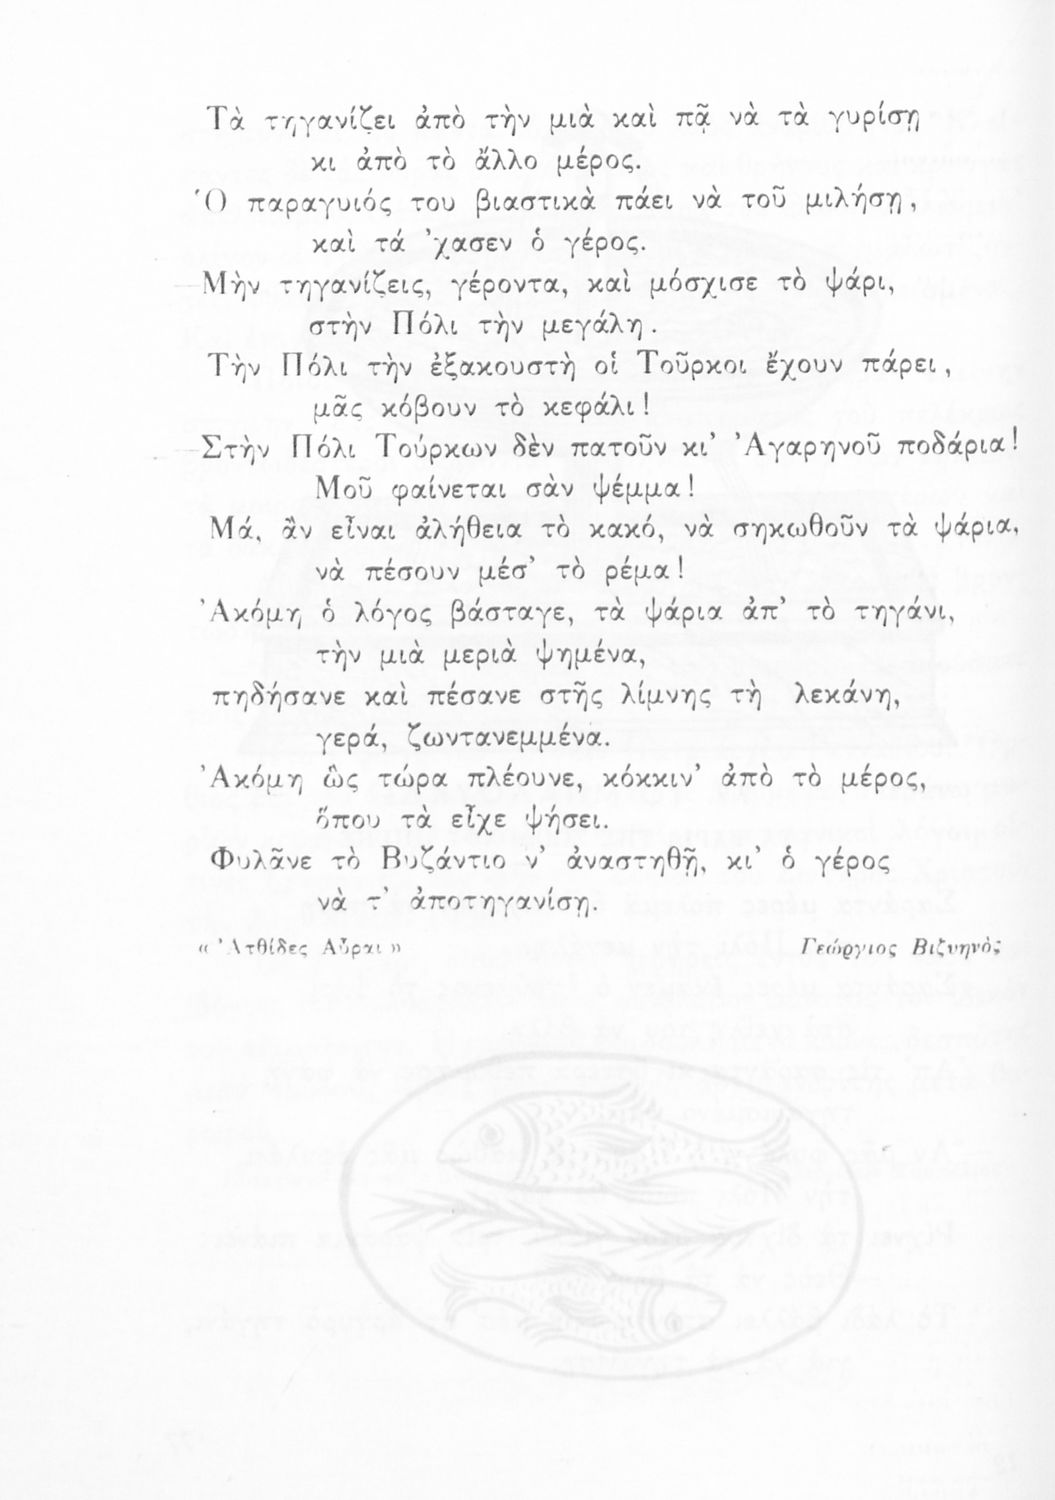 Τὰ τηγανίζει ἀπὸ τὴν μιὰ καὶ πᾷ νὰ τὰ γυρίσῃ
κι ἀπὸ τὸ ἄλλο μέρος.
Ὁ παραγυιός του βιαστικὰ πάει νὰ τοῦ μιλήσῃ,
καὶ τά 'χασεν ὁ γέρος.
—Μὴν τηγανίζεις, γέροντα, καὶ μόσχισε τὸ ψάρι,
στὴν Πόλι τὴν μεγάλη.
Τὴν Πόλι τὴν ἐξακουστὴ οἱ Τοῦρκοι ἔχουν πάρει,
μᾶς κόβουν τὸ κεφάλι!
—Στὴν Πόλι Τούρκων δὲν πατοῦν κι' Ἀγαρηνοῦ ποδάρια!
Μοῦ φαίνεται σὰν ψέμμα!
Μά, ἂν εἶναι ἀλήθεια τὸ κακό, νὰ σηκωθοῦν τὰ ψάρια,
νὰ πέσουν μέσ' τὸ ρέμα!
Ἀκόμη ὁ λόγος βάσταγε, τὰ ψάρια ἀπ' τὸ τηγάνι,
τὴν μιὰ μεριὰ ψημένα,
πηδήσανε καὶ πέσανε στῆς λίμνης τὴ λεκάνη,
γερά, ζωντανεμμένα.
Ἀκόμη ὣς τώρα πλέουνε, κόκκιν' ἀπὸ τὸ μέρος,
ὅπου τὰ εἶχε ψήσει.
Φυλᾶνε τὸ Βυζάντιο ν' ἀναστηθῇ, κι' ὁ γέρος
νὰ τ' ἀποτηγανίσῃ.
« Ἀτθίδες Αὖραι » Γεώργιος Βιζυηνὸς